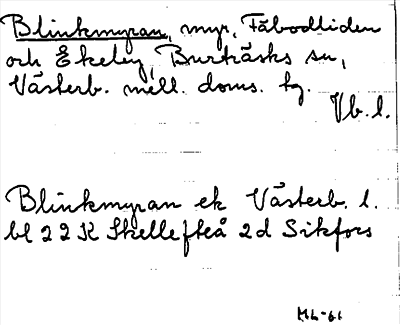 Blinkmyran, myr, Fäbodliden
och Ekeley, Burträsks sn,
Västerb. mell. doms. tg.
Vb. l.
Blinkmyran ek Västerb. l.
bl 22 K Skellefteå 2d Sikfors
ML-61